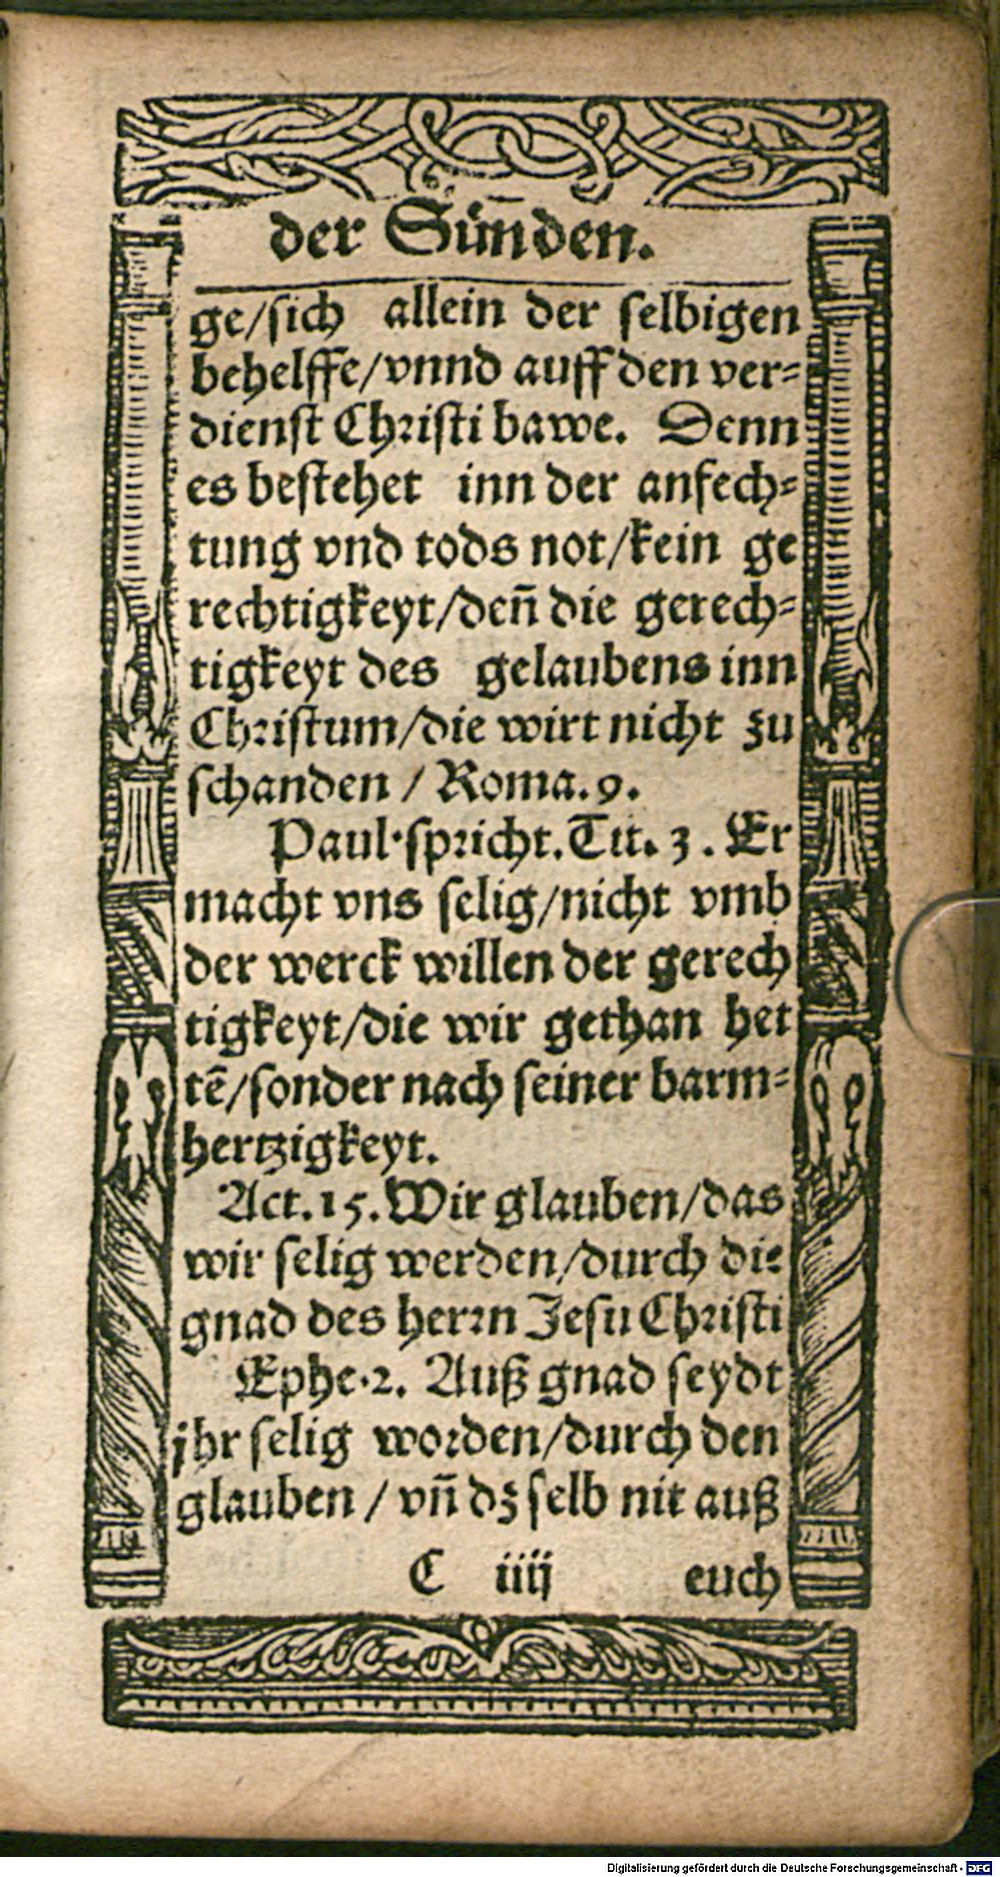 der Sün̄den.
ge/sich allein der selbigen
behelffe/vnnd auff den ver-
dienst Christi bawe. Denn
es bestehet inn der anfech-
tung vnd tods not/kein ge
rechtigkeyt/deñ die gerech-
tigkeyt des gelaubens inn
Christum/die wirt nicht zu
schanden / Roma. 9.
Paul·spricht. Tit. 3. Er
macht vns selig/nicht vmb
der werck willen der gerech
tigkeyt/die wir gethan het
tē/sonder nach seiner barm-
hertzigkeyt.
Act. 15. Wir glauben/das
wir selig werden/durch die
gnad des herrn Jesu Christi
Ephe·2. Auß gnad seydt
jhr selig worden/durch den
glauben / vñ dz selb nit auß
C iiij euch
Digitalisierung gefördert durch die Deutsche Forschungsgemeinschaft - DFG